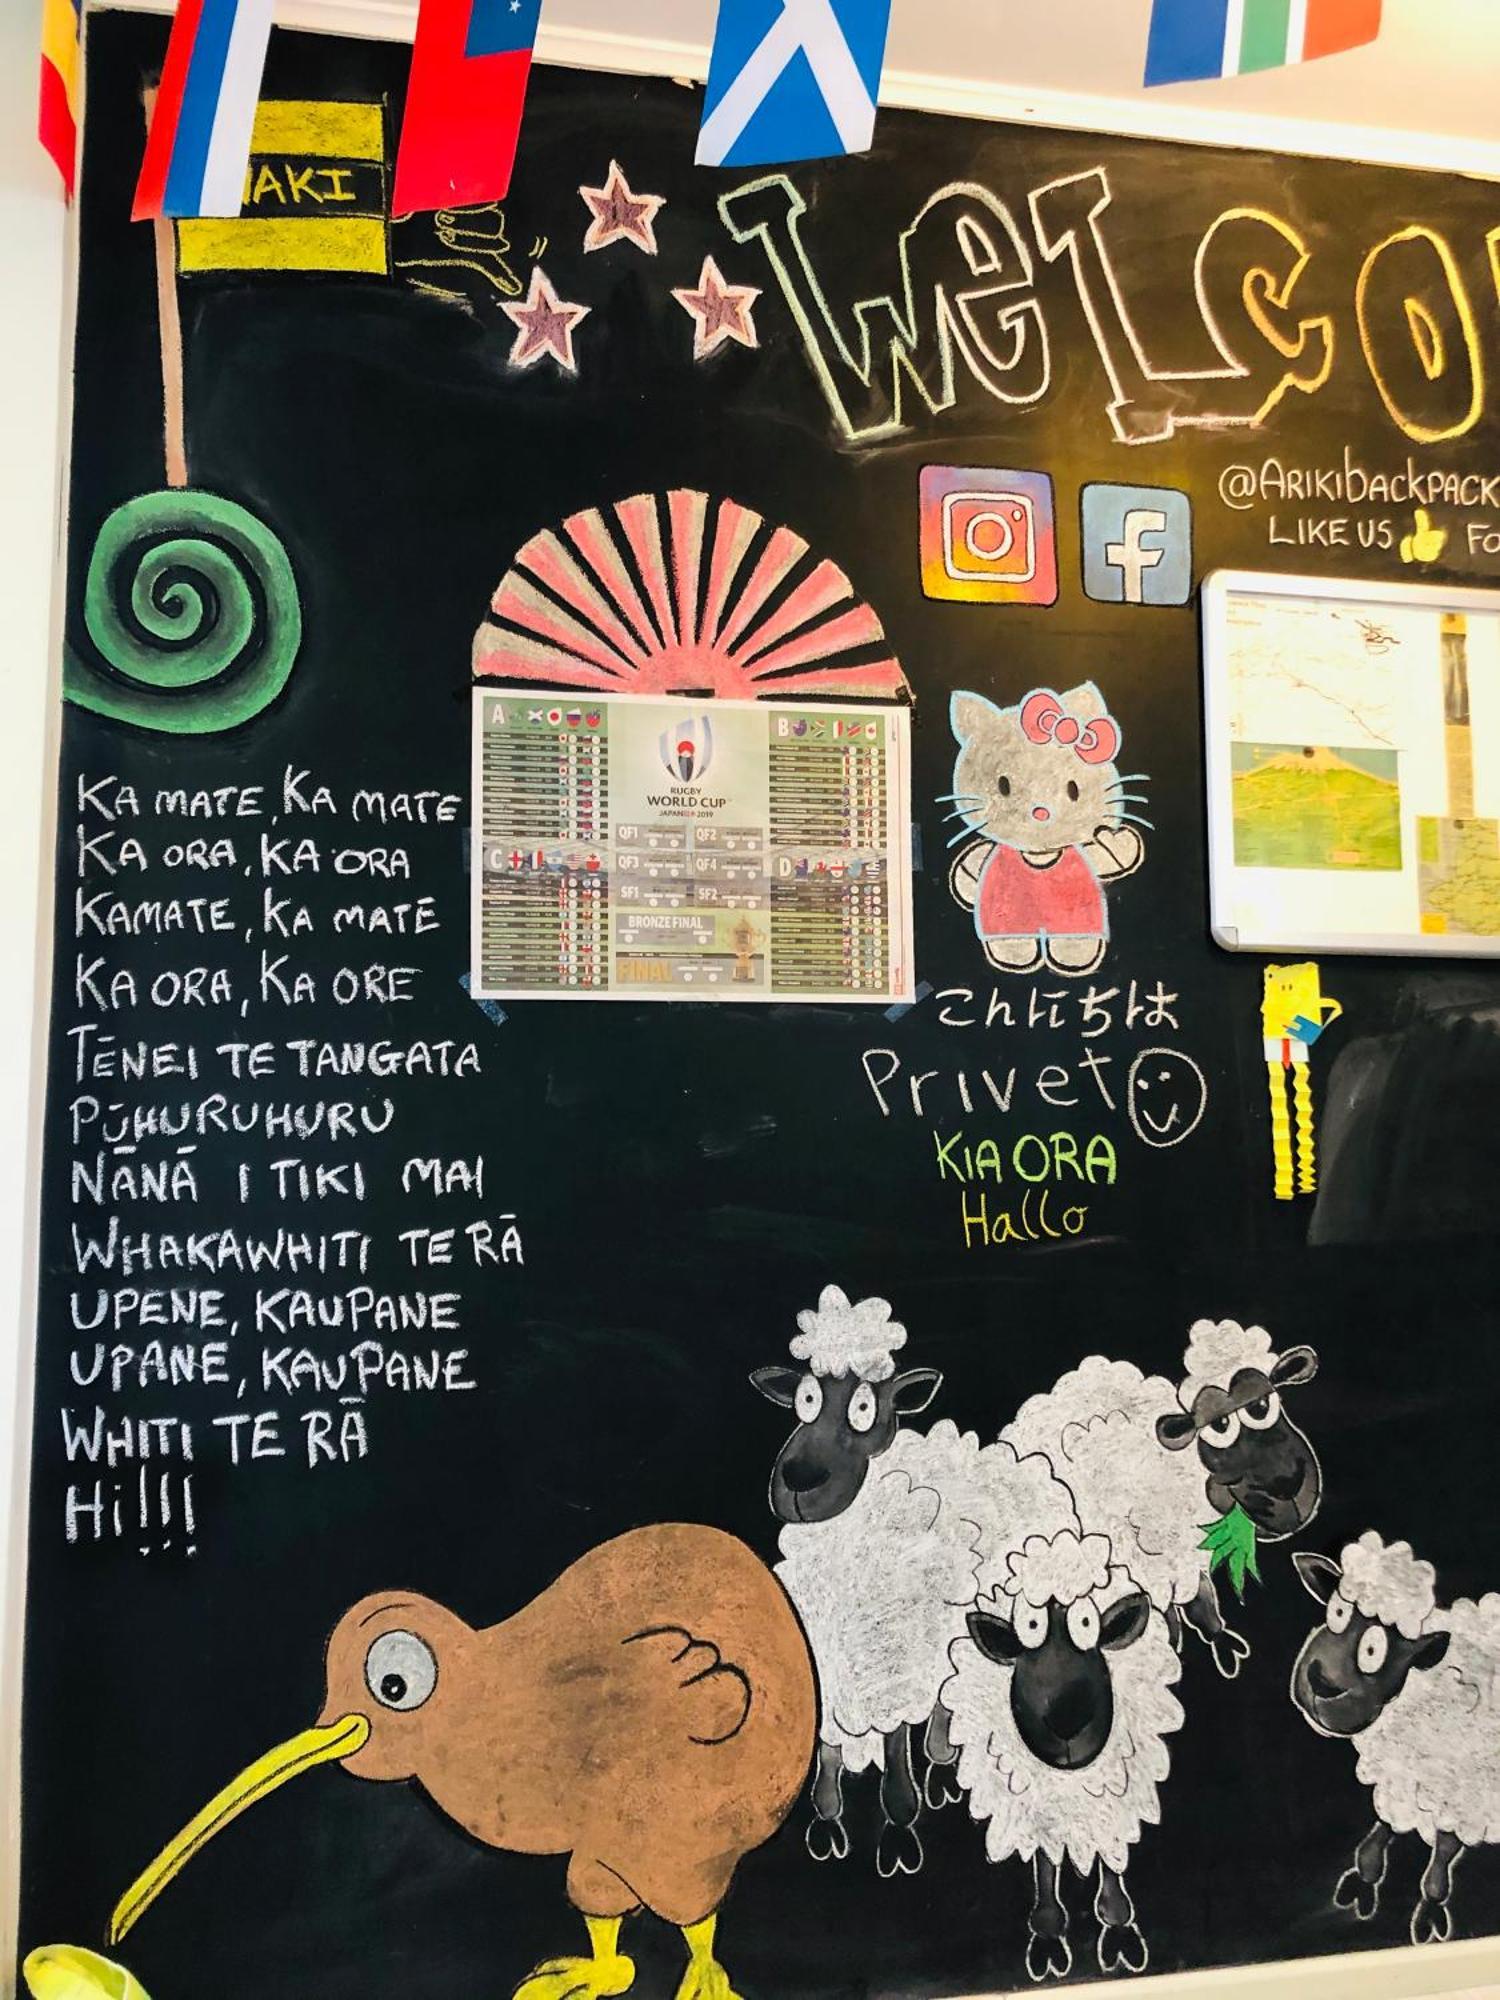 WELCO
@ARIKIBACKPACK
LIKE US
KA MATE, KA MATE
KA ORA, KA ORA
KAMATE, KA MATĒ
KA ORA, KA ORE
TĒNEI TE TANGATA
PŪHURUHURU
NĀNĀ I TIKI MAI
WHAKAWHITI TE RĀ
UPENE, KAUPANE
UPANE, KAUPANE
WHITI TE RĀ
Hi!!!
A
B
RUGBY
WORLD CUP
JAPAN 2019
QF1 QF2
C
QF3 QF4
D
SF1 SF2
BRONZE FINAL
FINAL
こんにちは
Privet
KIA ORA
Hallo